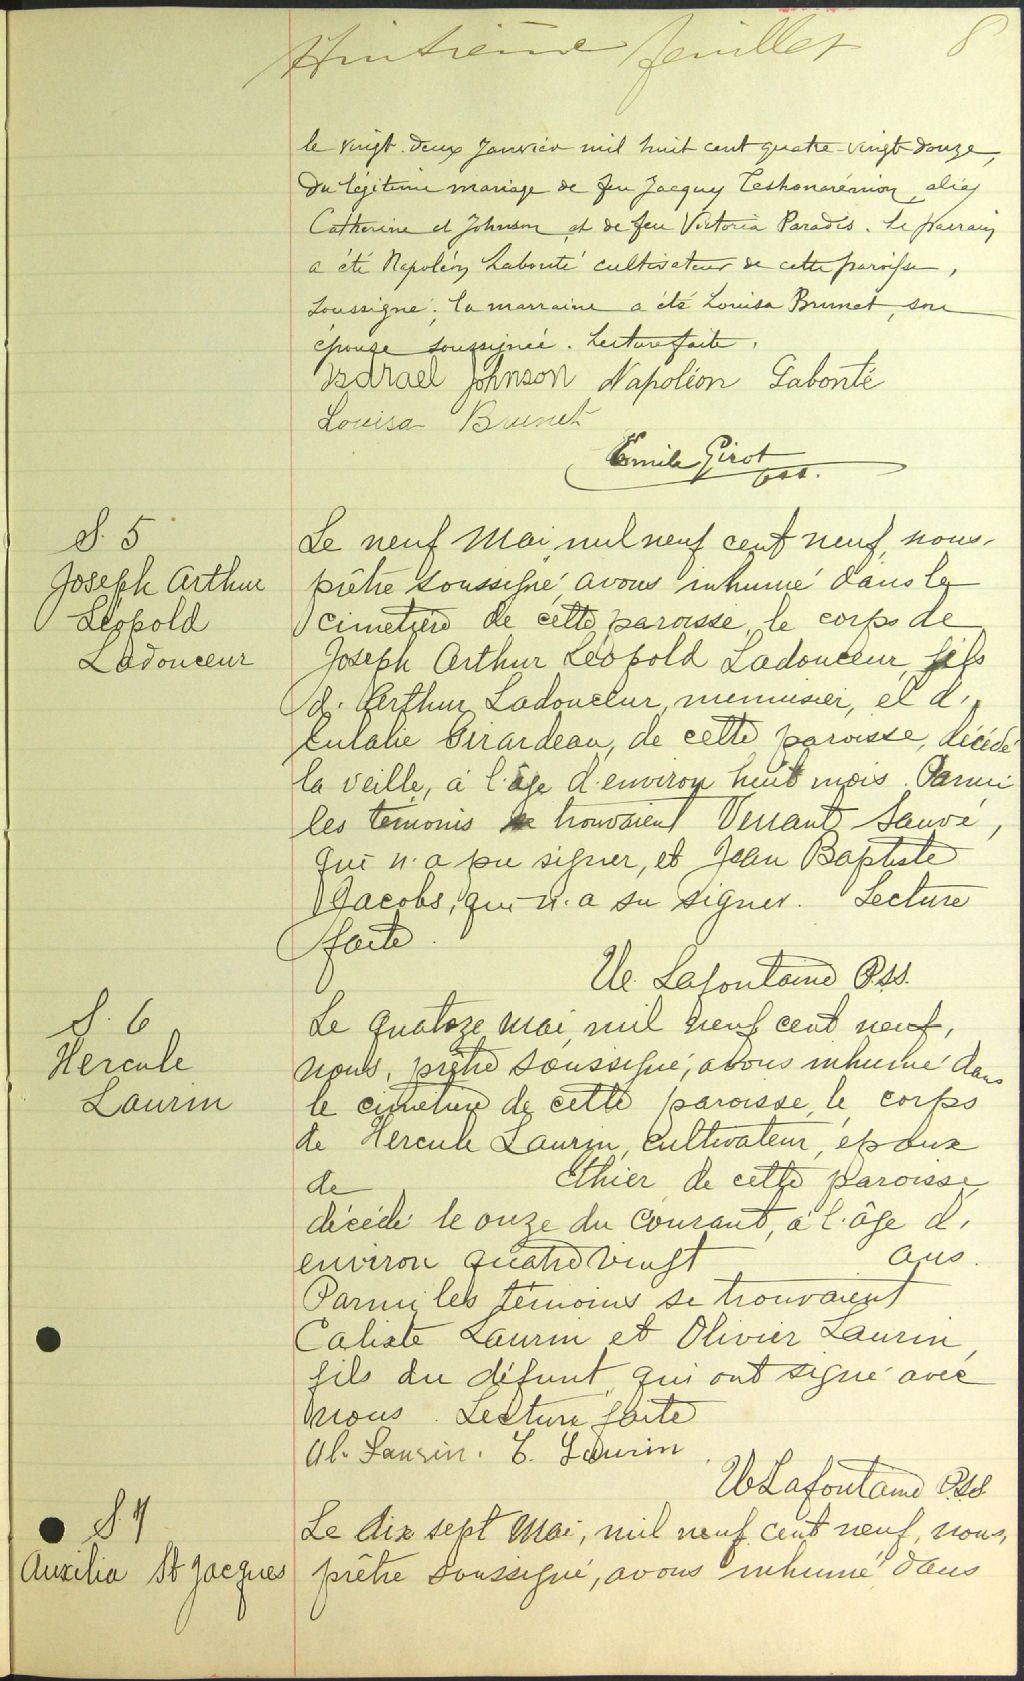 Huitième feuillet 8
le vingt-deux Janvier mil huit cent quatre-vingt-douze,
du légitime mariage de feu Jacques Teskonarémion, alias
Catherine et Johnson et de feu Victoria Paradis. Le parrain
a été Napoléon Labonté cultivateur de cette paroisse,
soussigné; la marraine a été Louisa Brunet, son
épouse soussignée. Lecture faite.
Izdrael Johnson Napoléon Labonté
Louisa Brunet
Emile Girot
pss.
S. 5
Joseph Arthur
Léopold
Ladouceur
Le neuf Mai, mil neuf cent neuf, nous,
prêtre soussigné, avons inhumé dans le
cimetière de cette paroisse, le corps de
Joseph Arthur Léopold Ladouceur, fils
d'Arthur Ladouceur, menuisier, et d'
Eulalie Girardeau, de cette paroisse, décédé
la veille, à l'âge d'environ huit mois. Parmi
les témoins se trouvaient Venant Sauvé,
qui n'a pu signer, et Jean Baptiste
Jacobs, qui n'a su signer. Lecture
faite.
Lafontaine P.S.S.
S. 6
Hercule
Laurin
Le quatoze Mai, mil neuf cent neuf,
nous, prêtre soussigné, avons inhumé dans
le cimetière de cette paroisse, le corps
de Hercule Laurin, cultivateur, époux
de Ethier, de cette paroisse,
décédé le onze du courant, à l'âge d'
environ quatre vingt ans.
Parmi les témoins se trouvaient
Calixte Laurin et Olivier Laurin,
fils du défunt, qui ont signé avec
nous. Lecture faite
Ol. Laurin. C. Laurin.
Lafontaine P.S.S.
S. 7
Auxilia St Jacques
Le dix sept Mai, mil neuf cent neuf, nous,
prêtre soussigné, avons inhumé dans